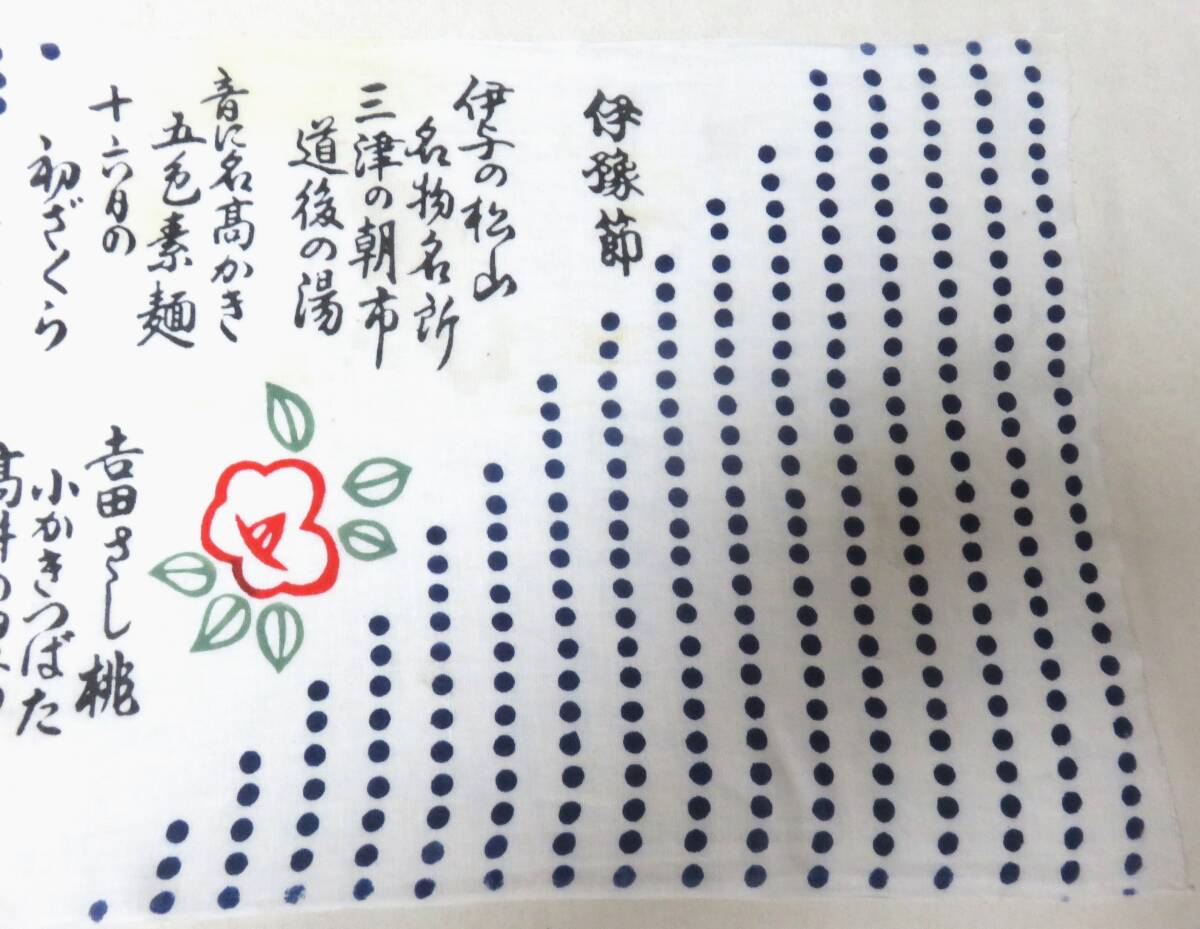 伊豫節
伊予の松山
名物名所
三津の朝市
道後の湯
音に名高かき
五色素麺
十六日の
初ざくら
吉田さし桃
小かきつばた
高井の